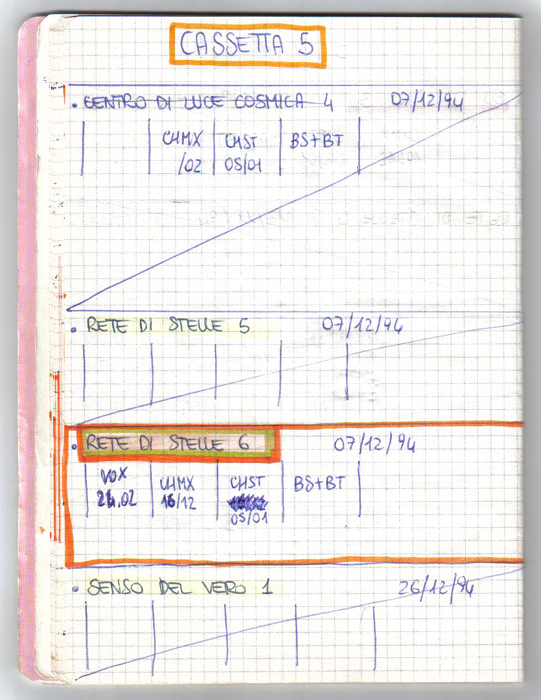 CASSETTA 5
CENTRO DI LUCE COSMICA 4 07/12/94
CHMX CHST BS+BT
/02 05/01
RETE DI STELLE 5 07/12/94
RETE DI STELLE 6 07/12/94
VOX CHMX CHST BS+BT
16/12
05/01
SENSO DEL VERO 1 26/12/94